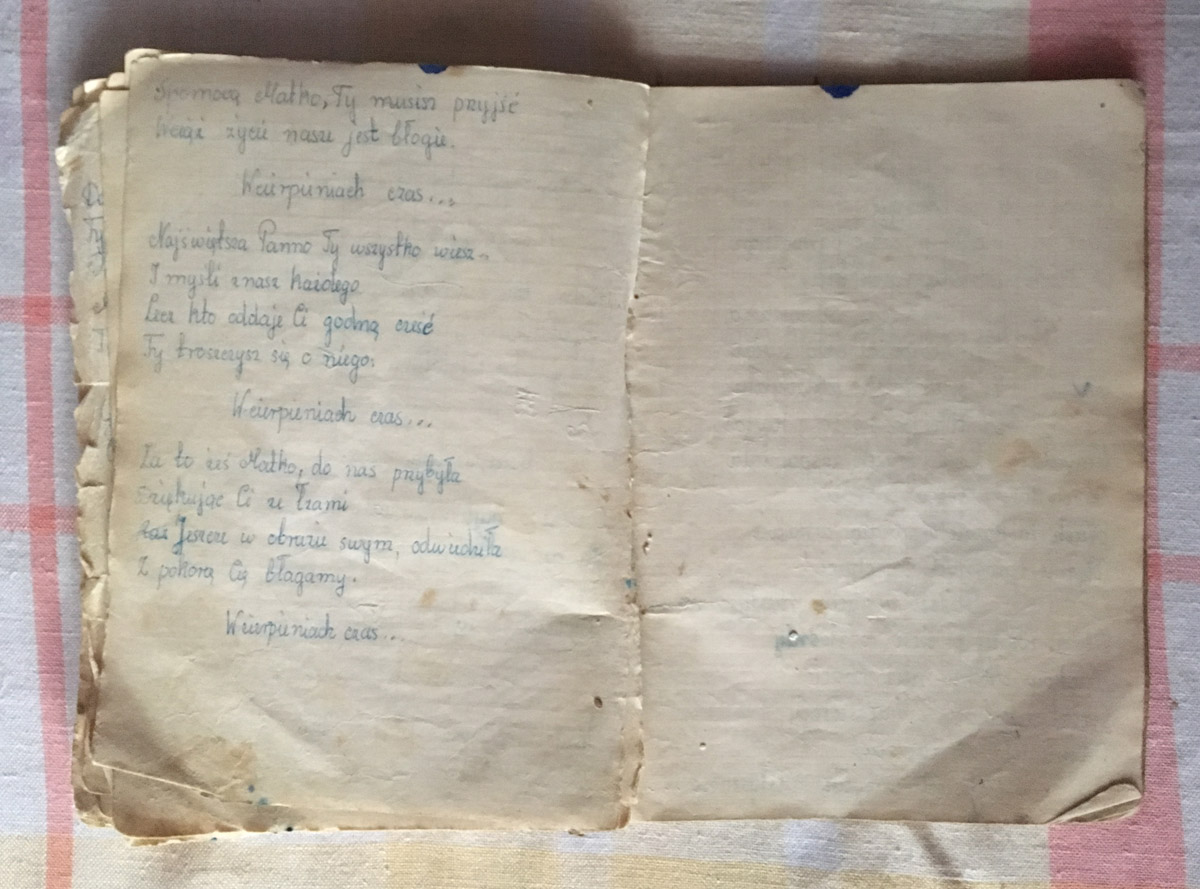 Spomocą Matko, Ty musisz pryjść
Wciąż życie nasze jest błogie.
Wcierpieniach czas...
Najświętsza Panno Ty wszystko wiesz
I myśli znasz każdego
Lecz kto oddaje Ci godną cześć
Ty troszczysz się o niego.
Wcierpieniach czas...
Za to żeś Matko, do nas przybyła
Dziękując Ci ze łzami
Jeszcze w obrazie swym, odwiedziła
Z pokorą Cię błagamy.
Wcierpieniach czas...